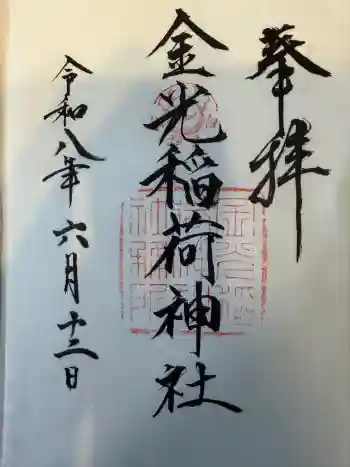 奉拝
金光稲荷神社
令和八年六月十三日